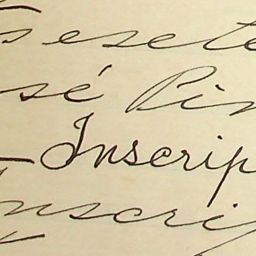 esete
sé Pin
Inscrip
nscrip